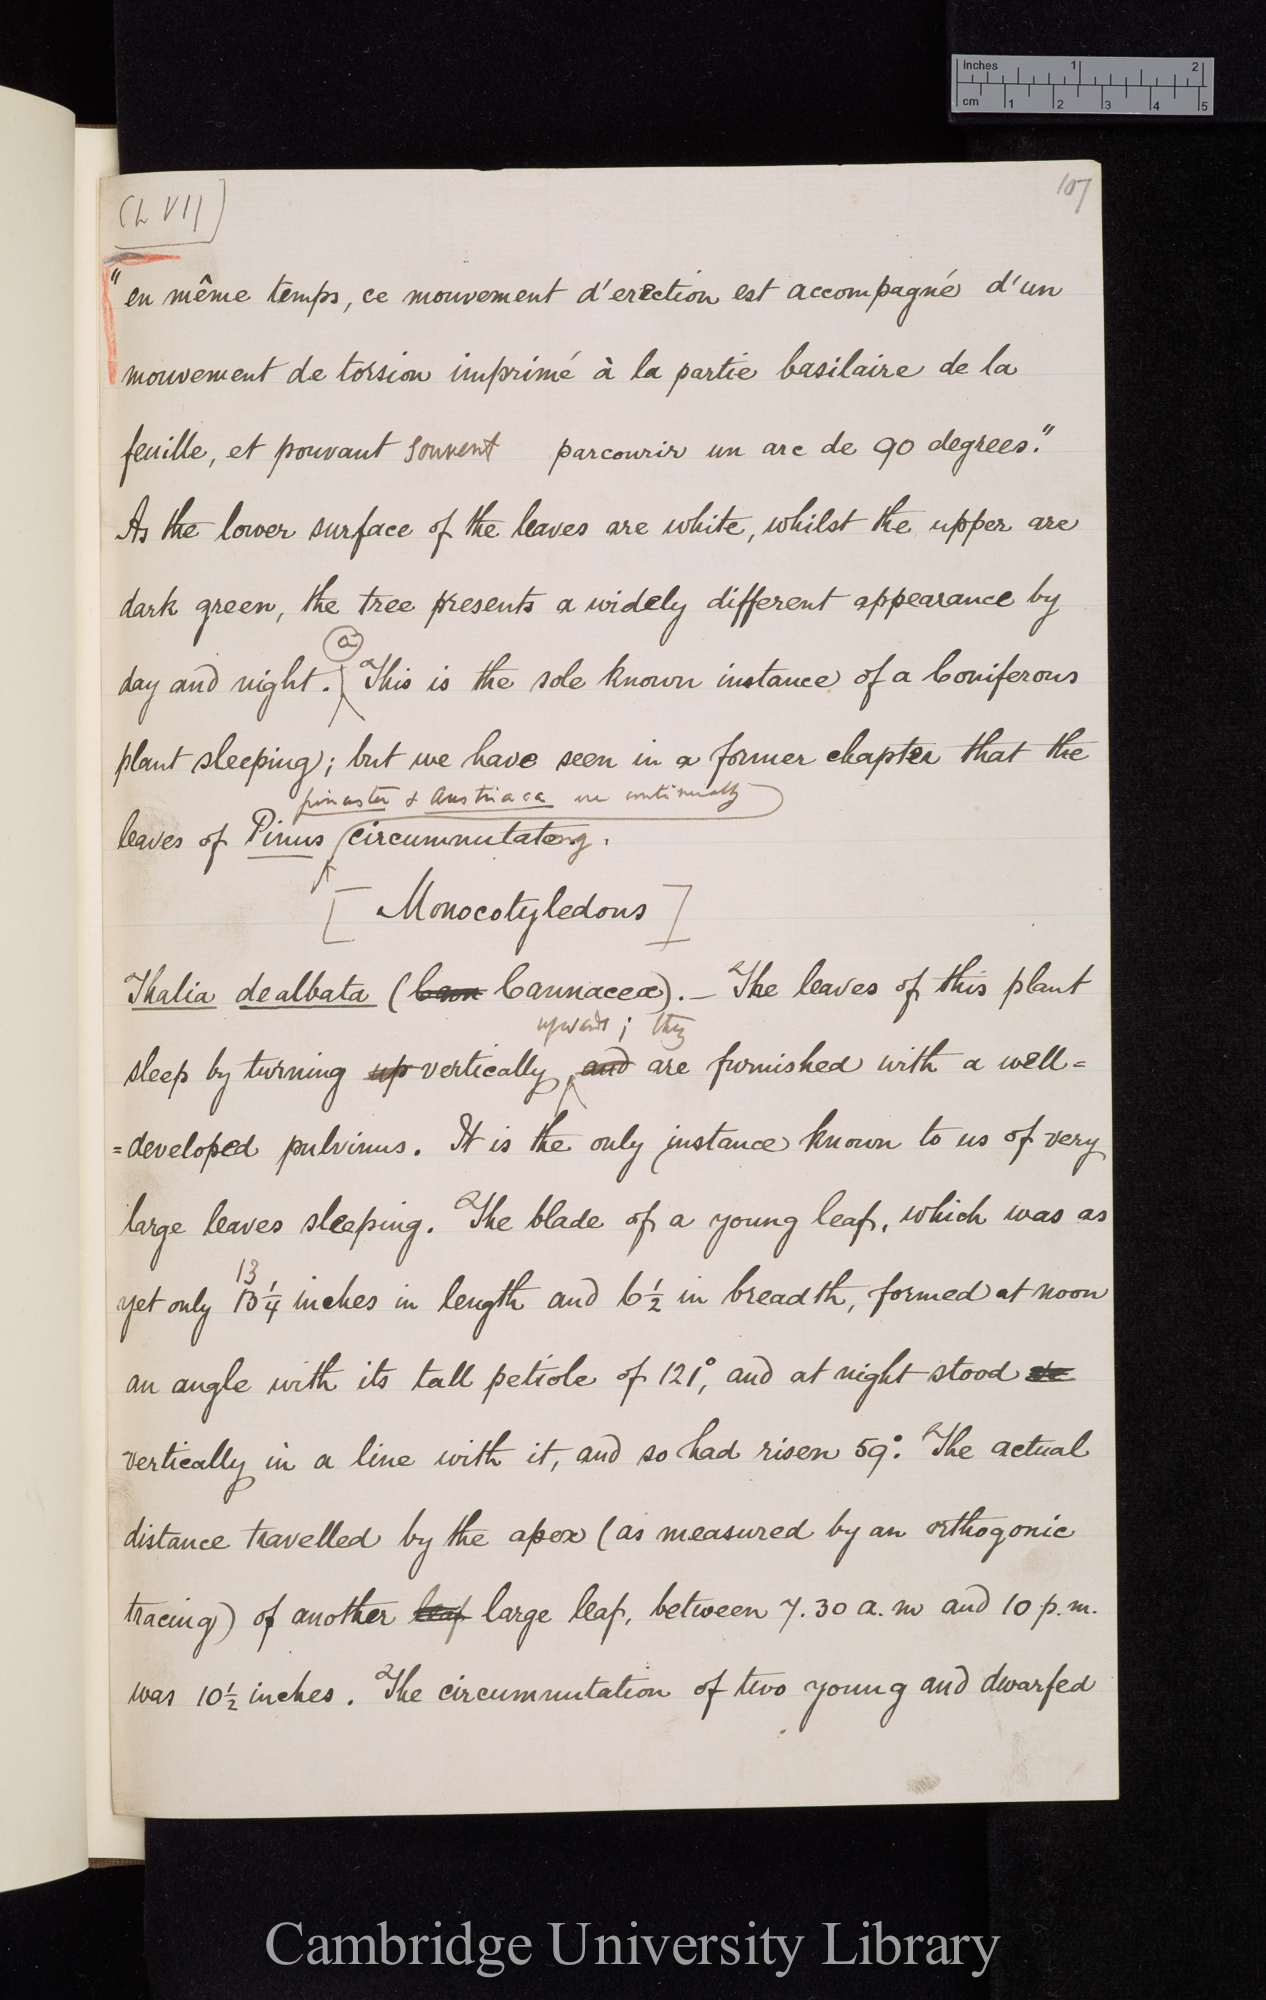 Inches 1 2
cm 1 2 3 4 5
(L VII)
107
"en même temps, ce mouvement d'erection est accompagné d'un
mouvement de torsion imprimé à la partie basilaire de la
feuille, et pouvant souvent parcourir un arc de 90 degrees."
As the lower surface of the leaves are white, whilst the upper are
dark green, the tree presents a widely different appearance by
(a)
day and night. This is the sole known instance of a Coniferous
plant sleeping; but we have seen in a former chapter that the
pinaster & Austriaca are continually
leaves of Pinus circumnutating.
[Monocotyledons]
Thalia dealbata (Cann Cannaceæ). — The leaves of this plant
upwards; they
sleep by turning up vertically, and are furnished with a well=
=developed pulvinus. It is the only instance known to us of very
large leaves sleeping. The blade of a young leaf, which was as
13
yet only 13 1/4 inches in length and 6 1/2 in breadth, formed at noon
an angle with its tall petiole of 121°, and at night stood ve
vertically in a line with it, and so had risen 59°. The actual
distance travelled by the apex (as measured by an orthogonic
tracing) of another leaf large leaf, between 7.30 a.m and 10 p.m.
was 10 1/2 inches. The circumnutation of two young and dwarfed
Cambridge University Library